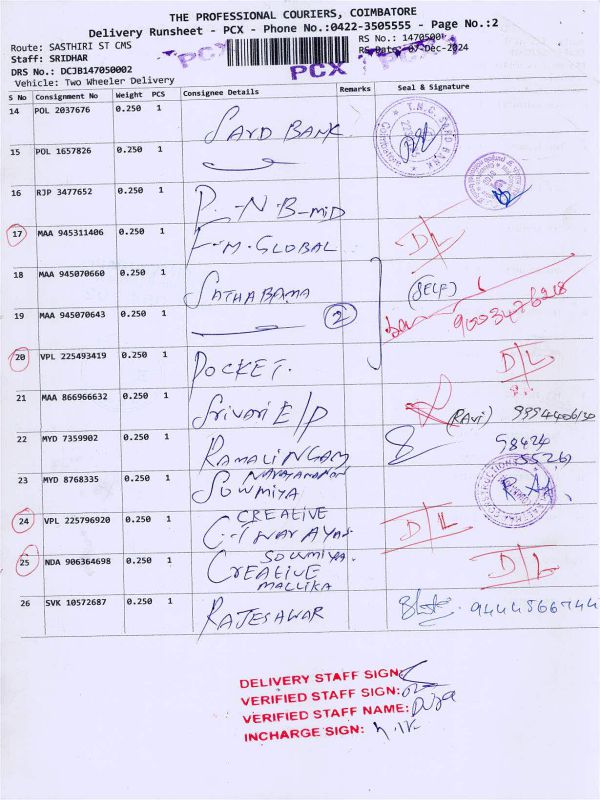 THE PROFESSIONAL COURIERS, COIMBATORE
Delivery Runsheet - PCX - Phone No.:0422-3505555 - Page No.:2
Route: SASTHIRI ST CMS
RS No.: 1470500
Staff: SRIDHAR
RS Date: 07-Dec-2024
PCX
PCX
DRS No.: DCJB147050002
Vehicle: Two Wheeler Delivery
S No Consignment No Weight PCS Consignee Details Remarks Seal & Signature
14 POL 2037676 0.250 1 SARD BANK
T.N.C. SARD BANK
15 POL 1657826 0.250 1
16 RJP 3477652 0.250 1 P.-N.B-MID
17 MAA 945311406 0.250 1 F.M.GLOBAL D/L
18 MAA 945070660 0.250 1 SATHABAMA (SELF)
19 MAA 945070643 0.250 1 2 9003426928
20 VPL 225493419 0.250 1 POCKET. D/L
21 MAA 866966632 0.250 1 Srivari E/P (RAVi) 9994406130
22 MYD 7359902 0.250 1 RAMALINGAM 98424
55269
23 MYD 8768335 0.250 1 NARAYANAN
SOWMIYA
24 VPL 225796920 0.250 1 CREATIVE D/L
25 NDA 906364698 0.250 1 SOWMIYA. D/L
CREATIVE
MALLIKA
26 SVK 10572687 0.250 1 RAJESAWAR 9444566744
DELIVERY STAFF SIGN:
VERIFIED STAFF SIGN:
VERIFIED STAFF NAME:
INCHARGE SIGN: